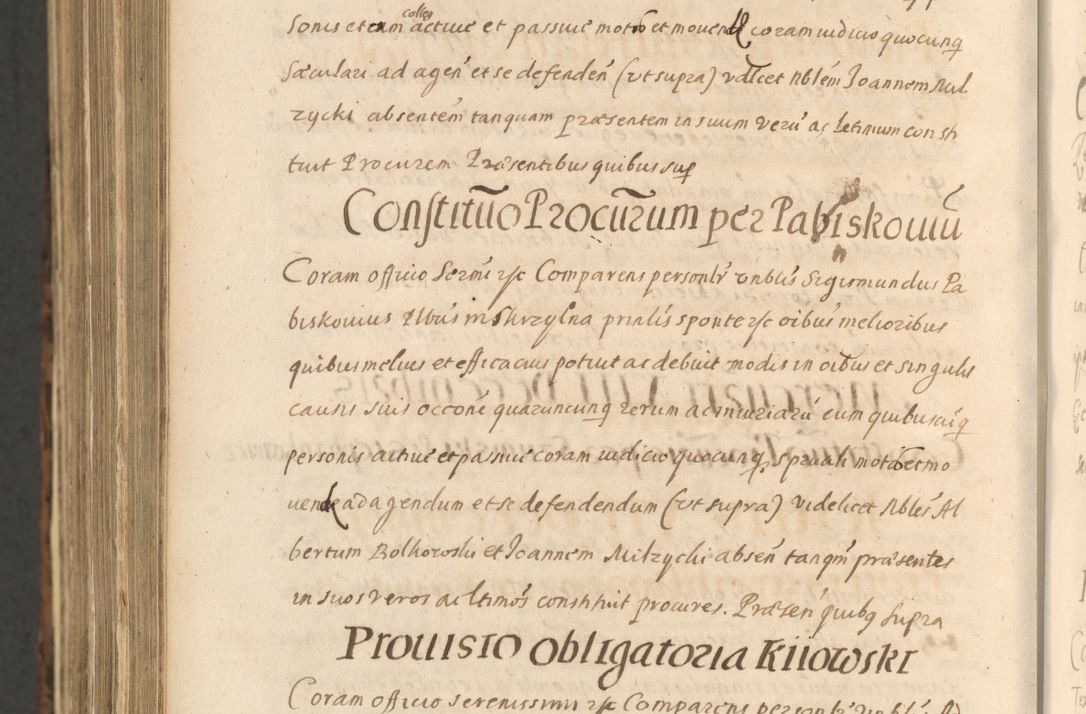 sonis et eam colleg actiue et passiue moto et mouend coram iudicio quocunq
sæculari ad agen̄ et se defenden̄ (vt supra) vdlcet Nblem̄ Joannem Mil
zycki absentem̄ tanquam præsentem in suum verū ac letimum consti
tuit Procurem Præsentibus quibus sup
Constitūo Procur̄um per Pabiskowiū
Coram officio Sermi etc Comparens personlr̄ Gnblis̄ Sigismundus Pa
biskowius Nbus̄ in Skrzylna prinlis̄ sponte etc oibus̄ melioribus
quibus melius et efficacius potuit ac debuit modis in oibus̄ et singulis
causis suis occone̅ quaruncunq rerum ac iniuriarū cum quibuscuq̄
personis actiue et passiue coram iudicio quocunq spruali moto et mo
uende ad agendum et se defendendum (vt supra) videlicet Nbles̄ Al
bertum Bolkowski et Joannem Milzycki absen̄ tanqm̄ præsentes
in suos veros ac ltimos̄ constituit procures. Præsen̄ quibq supra
Prouisio obligatoria Kiiowski
Coram officio serenissimi etc Comparens personlr̄